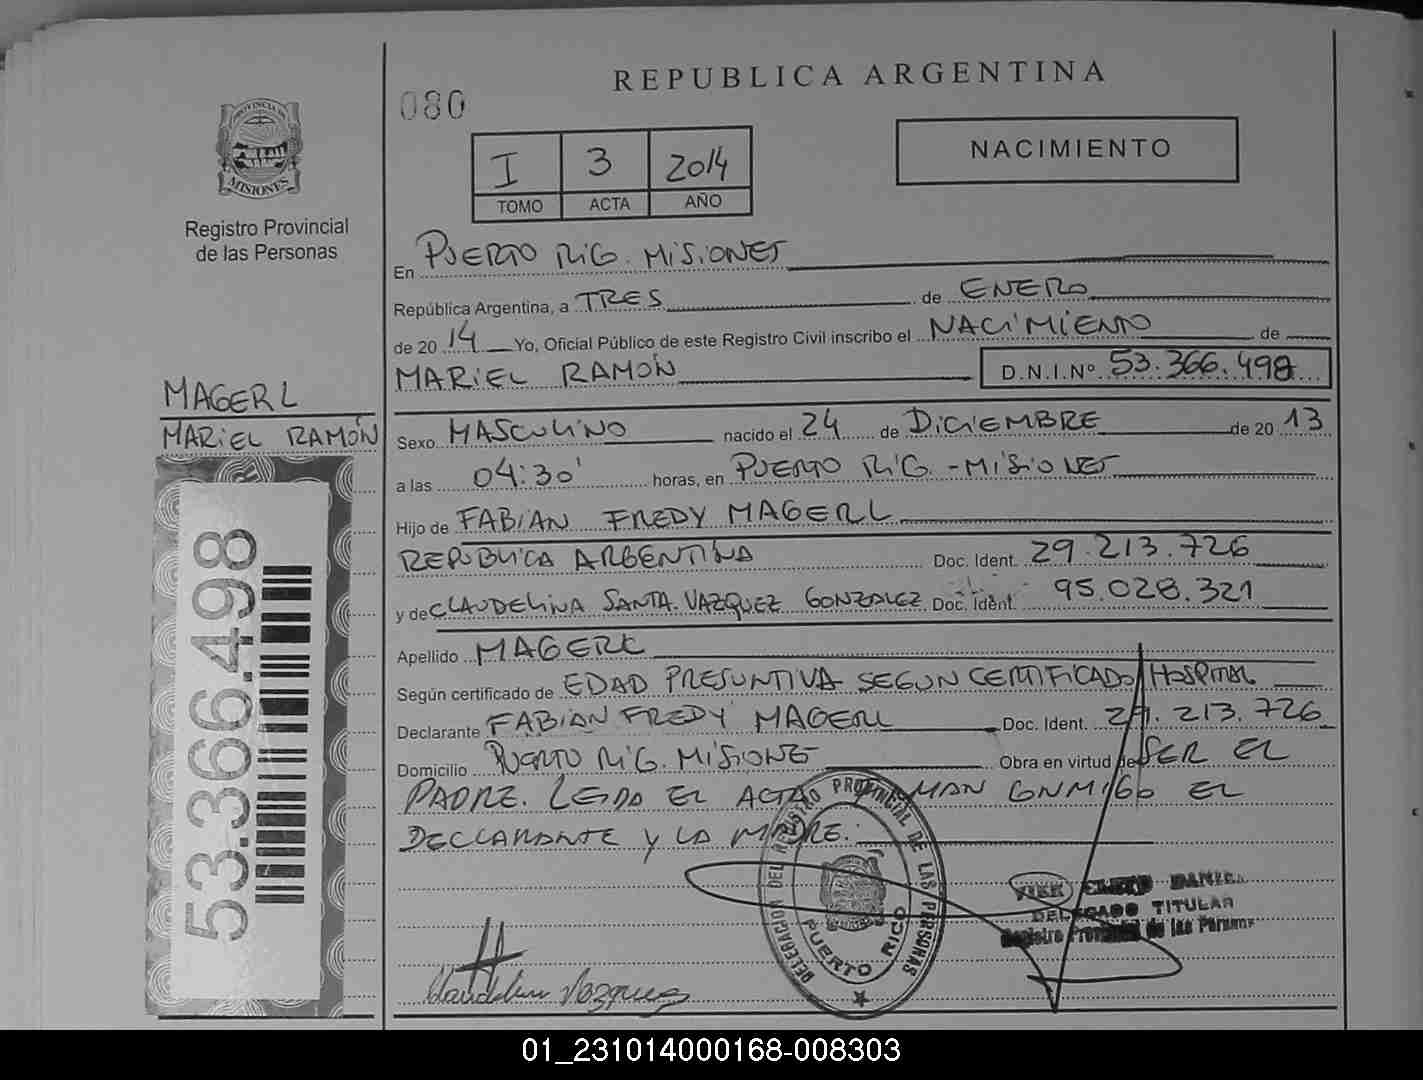 REPUBLICA ARGENTINA
080
PROVINCIA DE
MISIONES
Registro Provincial
de las Personas
I 3 2014
TOMO ACTA AÑO
NACIMIENTO
En PUERTO RICO. MISIONES
República Argentina, a TRES de ENERO
de 20 14 Yo, Oficial Público de este Registro Civil inscribo el NACIMIENTO de
MARIEL RAMÓN D.N.I.Nº 53.366.498
MAGERL
MARIEL RAMÓN
Sexo MASCULINO nacido el 24 de DICIEMBRE de 20 13
a las 04:30' horas, en PUERTO RICO.-MISIONES
Hijo de FABIAN FREDY MAGERL
REPUBLICA ARGENTINA Doc. Ident. 29.213.726
y de CLAUDELINA SANTA. VAZQUEZ GONZALEZ Doc. Ident. 95.028.321
Apellido MAGERL
Según certificado de EDAD PRESUNTIVA SEGUN CERTIFICADO HOSPITAL
Declarante FABIAN FREDY MAGERL Doc. Ident. 29.213.726
Domicilio PUERTO RICO. MISIONE Obra en virtud de SER EL
PADRE. LEIDO EL ACTA FIRMAN CONMIGO EL
DECLARANTE Y LA MADRE.
53.366.498
DELEGACION DEL REGISTRO PROVINCIAL DE LAS PERSONAS
PUERTO RICO
DANIEL
DELEGADO TITULAR
Registro Provincial de las Personas
Claudelina Vazquez
01_231014000168-008303